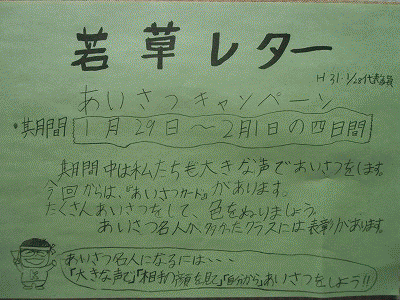 若草レター
H31.1/28代表委員
あいさつキャンペーン
・期間 1月29日〜2月1日の四日間
期間中は私たちも大きな声であいさつをします。
今回からは、"あいさつカード"があります。
たくさんあいさつをして、色をぬりましょう。
あいさつ名人が多かったクラスには表彰があります。
あいさつ名人になるには・・・・
「大きな声で」「相手の顔を見て」「自分から」あいさつをしよう!!